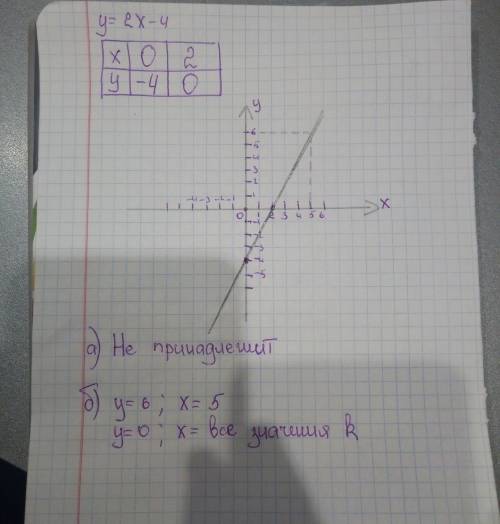 y = 2x-4
x 0 2
y -4 0
y
6
5
4
3
2
1
-4 -3 -2 -1
0 1 2 3 4 5 6 x
-1
-2
-3
-4
-5
а) Не принадлежит
б) y = 6 ; x = 5
y = 0 ; x = все значения k